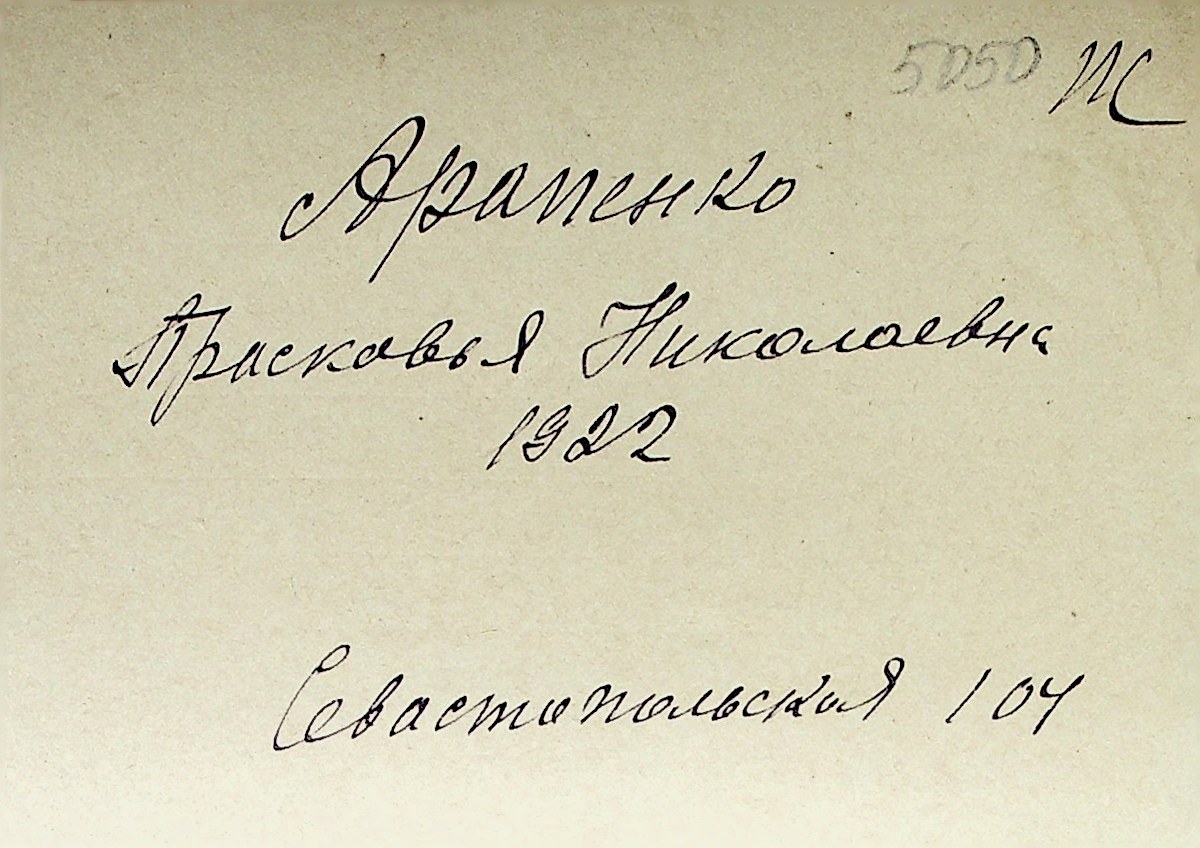 5050 ПС
Арапенко
Прасковья Николаевна
1922
Севастопольская 104